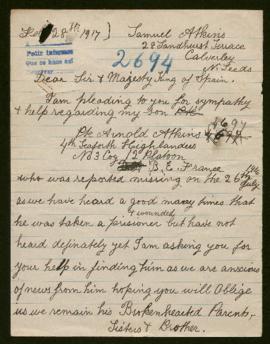 28th 1917) Samuel Atkins
22 Sandhurst Terrace
2694 Calverley
Nr Leeds
Dear Sir & Majesty King of Spain.
I am pleading to you for sympathy
& help regarding my Son
Pte Arnold Atkins 4697
4th Seaforth Highlanders
No 3 Coy 12 Platoon
B. E. France
who was reported missing on the 26th
as we have heard a good many times that
& wounded
he was taken a prisoner but have not
heard definately yet I am asking you for
your help in finding him as we are anxious
of news from him hoping you will Oblige
us we remain his Brokenhearted Parents,
Sisters & Brother.